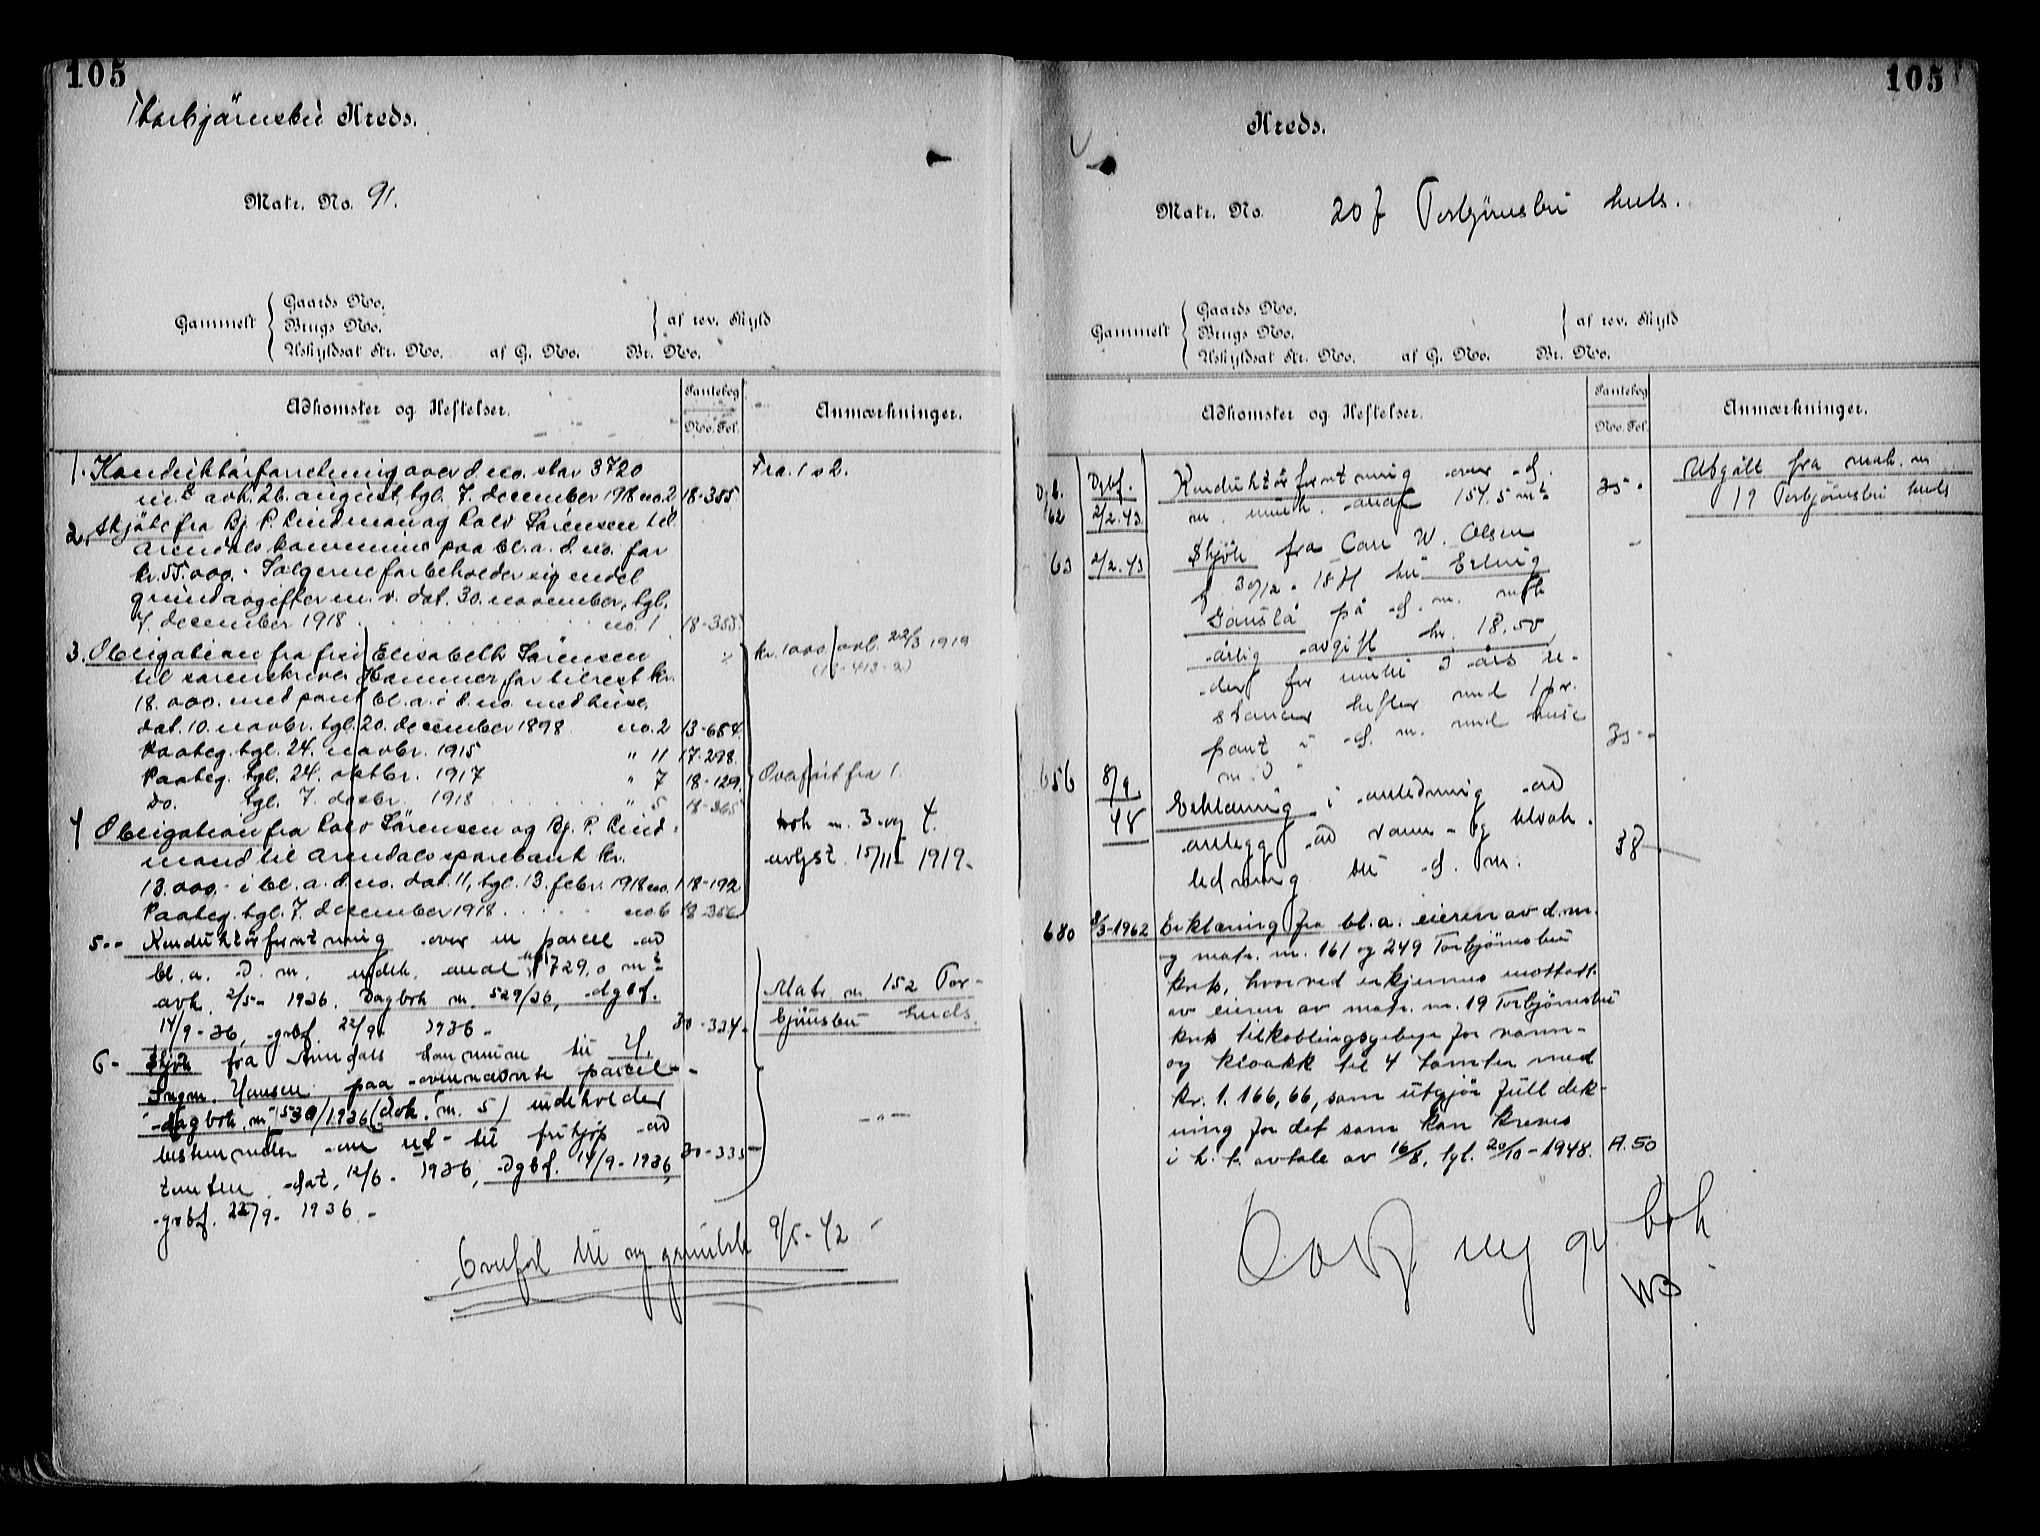 105
Thorbjörnsbu Kreds.
Matr. No. 91.
Gammelt
Gaards No.
Brugs No.
Uskyldsat Str. No. af G. No. Br. No.
af rev. Skyld
Adkomster og Heftelser.
Pantebog
No. Fol.
Anmærkninger.
1. Konduktörforretning over d. no. stor 3720
m.² avh. 26. august, tgl. 7. december 1918 no. 2 18-355
Fra. 1 o 2.
2. Skjöte fra Bj. P. Lindman og Rolv Sörensen til
Arendals kommune paa bl. a. d. no. for
kr. 55.000.- Sælgerne forbeholder sig endel
grundavgifter m. v. dat. 30. november, tgl.
7. december 1918 no. 1 18-355.
3. Obligation fra frue Elisabeth Sörensen
til sorenskriver Hammer for tilrest kr.
18.000. med pant bl. a. i d. no. med huse,
dat. 10. novbr. tgl. 20. december 1898 no. 2 13-684.
Paateg. tgl. 24. novbr. 1915 " 11 17-298.
Paateg. tgl. 24. oktbr. 1917 " 7 18-129.
Do. tgl. 7. decbr. 1918 " 5 18-365
kr. 1000 avl. 22/3 1919
(18-413-2)
Overfört fra 1.
4 Obligation fra Rolv Sörensen og Bj. P. Lind-
mand til Arendals sparebank kr.
13.000.- i bl. a. d. no. dat. 11, tgl. 13. febr. 1918 no. 1 18-192
Paateg. tgl. 7. december 1918 no 6 18-356
dok n. 3 og 4.
avlyst 15/11- 1919-
5-- Konduktörforretning over en parcel av
bl. a. d. m. matr. andel 729,0 m²
avh. 2/5- 1936. Dagbok n. 529/36, dgbf.
14/9-36, grbf. 22/9- 1936- 30-334-
Matr. n. 152 Tor-
björnsbu kreds.
6- Skjöte fra Arendals kommune til H.
Ingm. Hansen paa ovennævnte parcel-
-dagbok. n. 530/1936 (dok. n. 5) indeholder
bestemmelser om ret til frikjöp av
tomten. dat. 12/6- 1936, dgbf. 14/9-1936,
grbf. 22/9- 1936.-
30-335-
-"-
Overfört til ny grundbok 9/5-42-
105
Kreds.
Matr. No. 207 Torbjörnsbu kreds.
Gammelt
Gaards No.
Brugs No.
Uskyldsat Str. No. af G. No. Br. No.
af rev. Skyld
Adkomster og Heftelser.
Pantebog
No. Fol.
Anmærkninger.
Dgb. 62
Dgbf. 2/2.43
Konduktörforretning over d.
m. matr. areal 154.5 m²
35-
Utgått fra matr. n
19 Torbjörnsbu kreds
63 2/2.43
Skjöte fra Carl W. Olsen
f. 30/12-1871 til Erling
Gauslå på d. m. mot
årlig avgift kr. 18.50
der for inntil 3 års re-
stanser hefter med 1 pr.
pant i d. m. med huse
m. v.
35-
656 8/9 48
Erklæring i anledning av
anlegg av vann- og kloak-
ledning til d. m.
38
680 8/3-1962 Erklæring fra bl. a. eieren av d. m.
og matr. nr. 161 og 249 Torbjörnsbu
krets, hvorved erkjennes mottatt
av eieren av matr. nr. 19 Torbjörnsbu
krets tilkoblingsgebyr for vann-
og kloakk til 4 tomter med
kr. 1.166,66, som utgjör full dek-
ning for det som kan kreves
i h. t. avtale av 16/8, tgl. 20/10-1948. A. 50
Overf. ny gr. bok